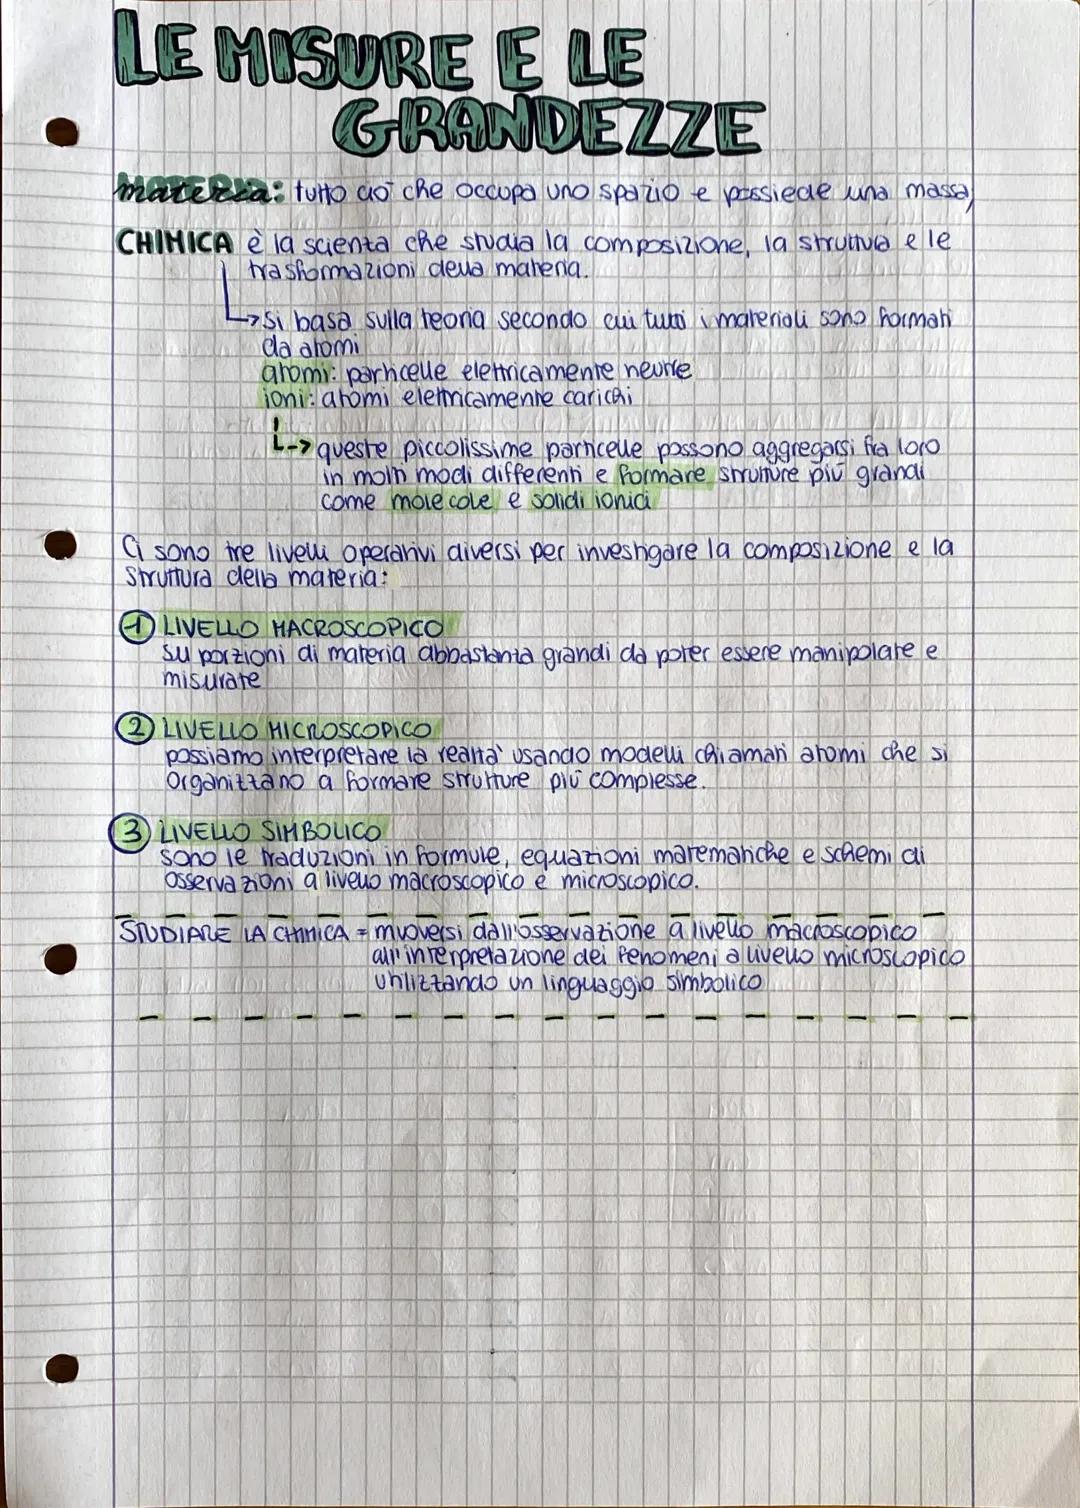 LE MISURE E LE
GRANDEZZE
materia: tutto ciò che occupa uno spazio e possiede una massa
CHIMICA è la scienza che studia la composizione, la struttura e le
trasformazioni della materia.
↳ si basa sulla teoria secondo cui tutti i materiali sono formati
da atomi
atomi: particelle elettricamente neutre
ioni: atomi elettricamente carichi
↳ queste piccolissime particelle possono aggregarsi fra loro
in molti modi differenti e formare strutture più grandi
come molecole e solidi ionici
Ci sono tre livelli operativi diversi per investigare la composizione e la
struttura della materia:
1 LIVELLO MACROSCOPICO
su porzioni di materia abbastanza grandi da poter essere manipolate e
misurate
2 LIVELLO MICROSCOPICO
possiamo interpretare la realtà usando modelli chiamati atomi che si
organizzano a formare strutture più complesse.
3 LIVELLO SIMBOLICO
sono le traduzioni in formule, equazioni matematiche e schemi di
osservazioni a livello macroscopico e microscopico.
STUDIARE LA CHIMICA = muoversi dall'osservazione a livello macroscopico
all'interpretazione dei fenomeni a livello microscopico
utilizzando un linguaggio simbolico